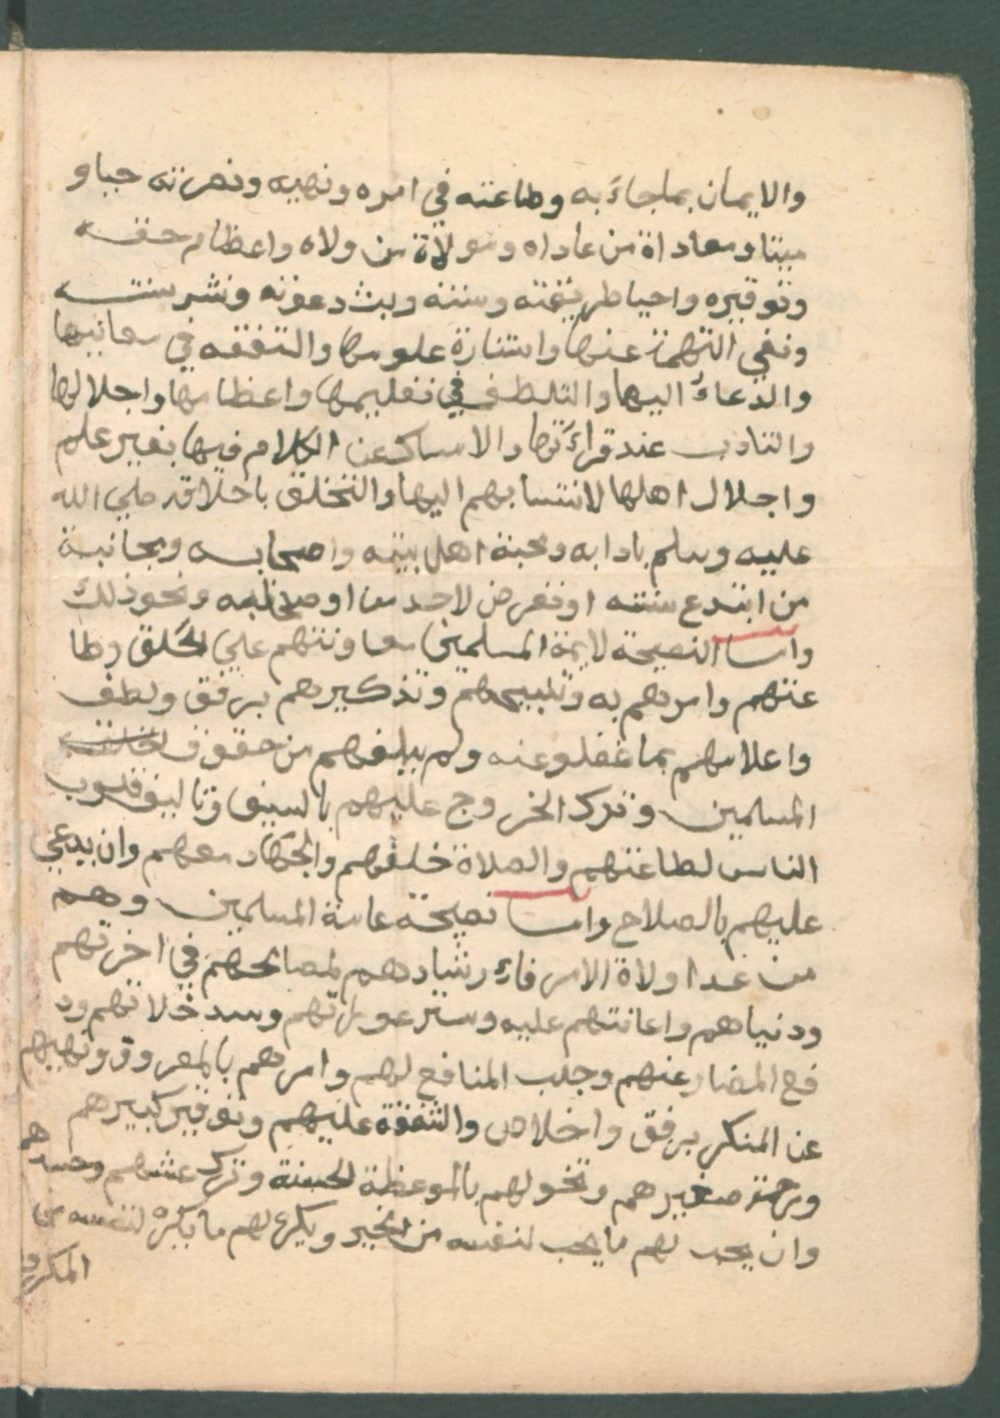 والايمان بماجاء به وطاعته في امره ونهيه ونصرته حيا و
ميتا ومعاداة من عاداه وموالاة من ولاه واعظام حقه
وتوقيره واحيا طريقته وسنته وبث دعوته ونشر سنته
ونفي التهمة عنها واستنارة علومها والتفقه في معانيها
والدعاء اليها والتلطف في تعليمها واعظامها واجلالها
والتادب عند قراءتها والامساك عن الكلام فيها بغير علم
واجلال اهلها لانتسابهم اليها والتخلق باخلاقه صلي الله
عليه وسلم بادابه ومحبة اهل بيته واصحابه ومجانبة
من ابتدع سنته او تعرض لاحد من اوصحابه ونحو ذلك
واما النصيحة لايمة المسلمين معاونتهم علي الحلق وطا
عتهم وامرهم به وتنبيههم وتذكيرهم برفق ولطف
واعلامهم بما غفلو عنه ولم يبلغهم من حقوق
المسلمين وترك الخروج عليهم بالسيف وتاليف قلوب
الناس لطاعتهم والصلاة خلفهم والجهاد معهم وان يدعي
عليهم بالصلاح واما نصيحة عامة المسلمين وهم
من عدا ولاة الامر فارشادهم لمصالحهم في اخرتهم
ودنياهم واعانتهم عليه وستر عوراتهم وسد خلاتهم ود
فع المضار عنهم وجلب المنافع لهم وامرهم بالمعروف ونهيهم
عن المنكر برفق واخلاص والشفقة عليهم وتوقير كبيرهم
ورحمة صغيرهم وتخولهم بالموعظة الحسنة وترك غشهم وحسدهم
وان يحب لهم ما يحب لنفسه من الخير ويكره لهم ما يكره لنفسه من
المكروه